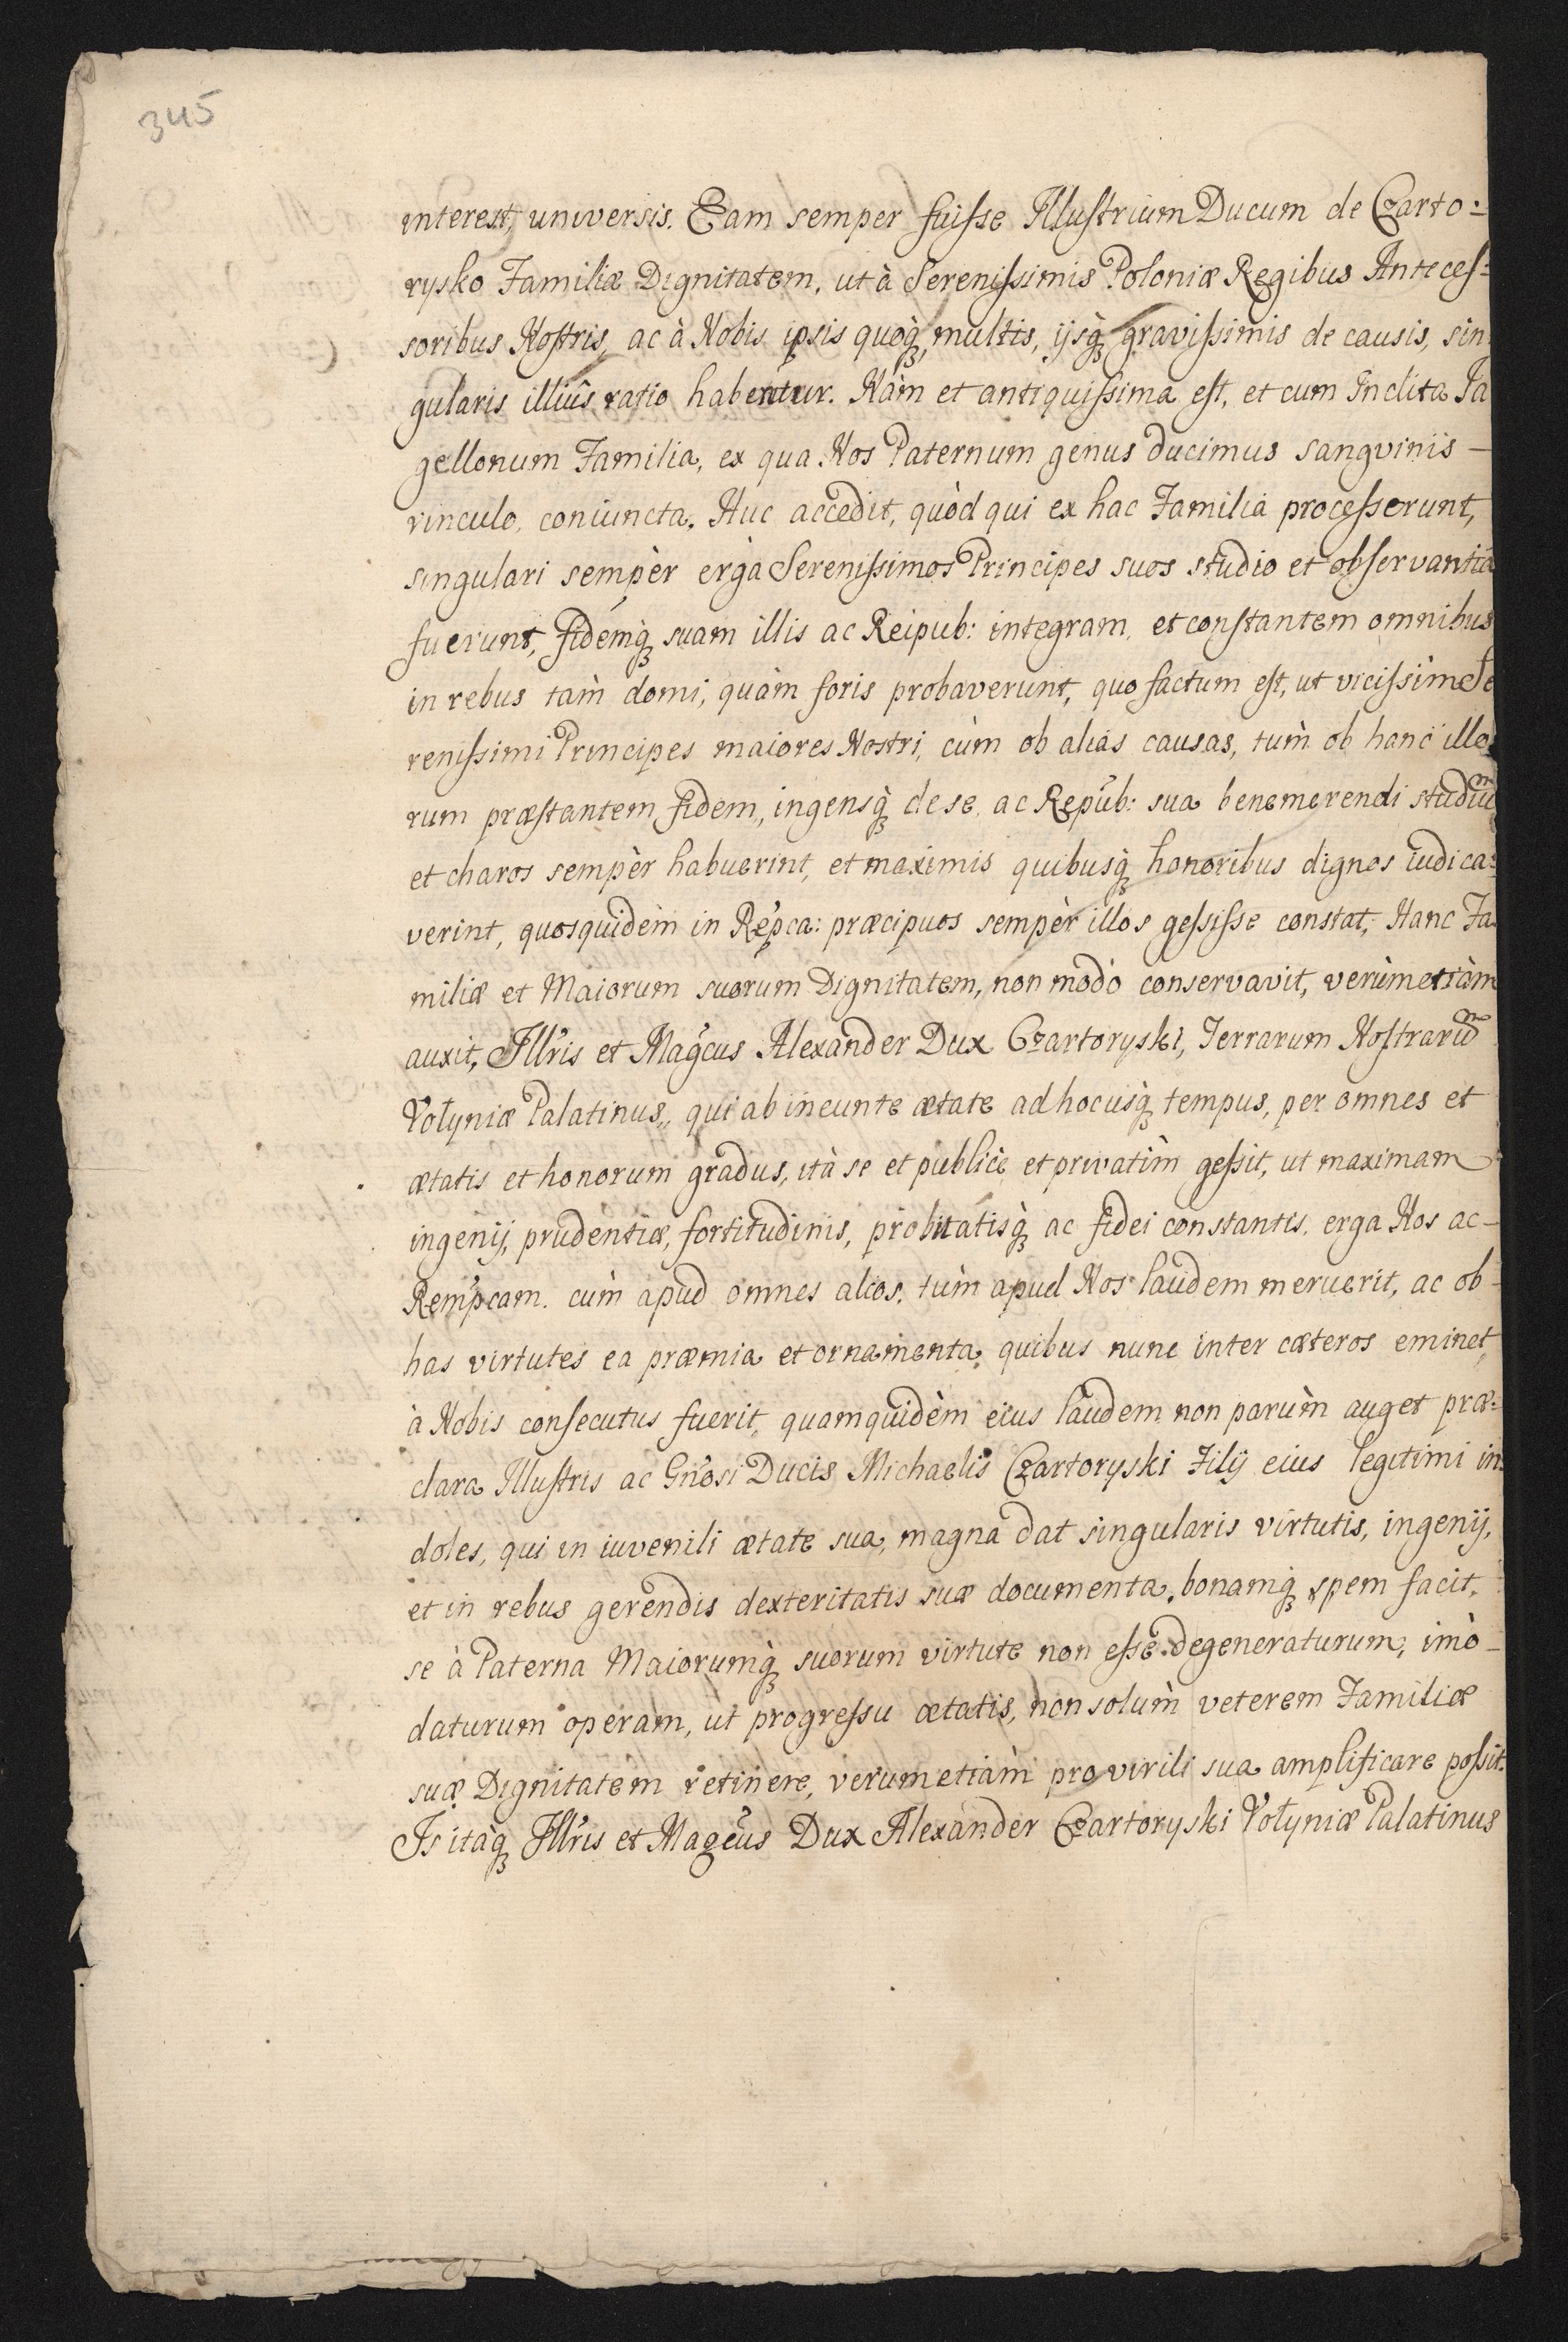 345
interest, universis. Eam semper fuisse Illustrium Ducum de Czarto:
rysko Familiæ Dignitatem, ut à Serenissimis Poloniæ Regibus Anteces:
soribus Nostris, ac à Nobis ipsis quoq; multis, ijsq; gravissimis de causis, sin
gularis illius ratio habeatur. Nàm et antiquissima est, et cum Inclita Ja
gellonum Familia, ex qua Nos Paternum genus ducimus sangvinis –
vinculo coniuncta. Huc accedit, quòd qui ex hac Familia processerunt,
singulari sempèr ergà Serenissimos Principes suos studio et observantia
fuerunt, fidémq; suam illis ac Reipub: integram, et constantem omnibus
in rebus tam̀ domi, quàm foris probaverunt, quo factum est, ut vicissìm Se
renissimi Principes maiores Nostri, cùm ob alias causas, tùm ob hanc illo
rum præstantem fidem, ingensq; de se, ac Repub: sua benemerendi studiũ
et charos sempèr habuerint, et maximis quibusq; honoribus dignos iudica:
verint, quosquidem in Repca: præcipuos sempèr illos gessisse constat; Hanc Fa
miliæ et Maiorum suorum Dignitatem, non modò conservavit, verùmetiàm
auxit, Illris et Magcus Alexander Dux Czartoryski, Terrarum Nostrarũ
Volyniæ Palatinus, qui ab ineunte ætate ad hocusq; tempus, per omnes et
ætatis et honorum gradus, ità se et publicè et privatìm gessit, ut maximam
ingenij, prudentiæ, fortitudinis, probitatisq; ac fidei constantis, erga Nos ac –
Rempcam. cùm apud omnes alios, tùm apud Nos laudem meruerit, ac ob –
has virtutes ea præmia et ornamenta, quibus nunc inter cæteros eminet,
à Nobis consecutus fuerit, quamquidèm eius laudem non parùm auget præ:
clara Illustris ac Gnosi Ducis Michaelis Czartoryski Filij eius legitimi in
doles, qui in iuvenili ætate sua, magna dat singularis virtutis, ingenij,
et in rebus gerendis dexteritatis suæ documenta, bonamq; spem facit,
se à Paterna Maiorumq; suorum virtute non esse degeneraturum, imò –
daturum operam, ut progressu ætatis, non solùm veterem Familiæ
suæ Dignitatem retinere, verumetiàm pro virili sua amplificare possit.
Is itaq; Illris et Magcus Dux Alexander Czartoryski Volyniæ Palatinus